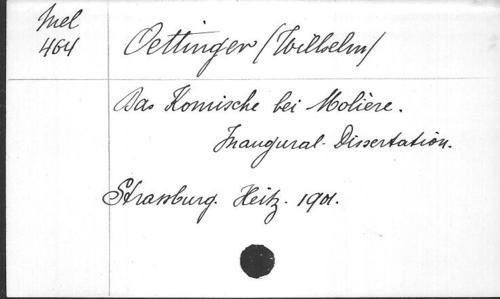 Mel
464
Oettinger (Wilhelm)
Das Komische bei Molière.
Inaugural-Dissertation.
Strassburg. Heitz. 1901.